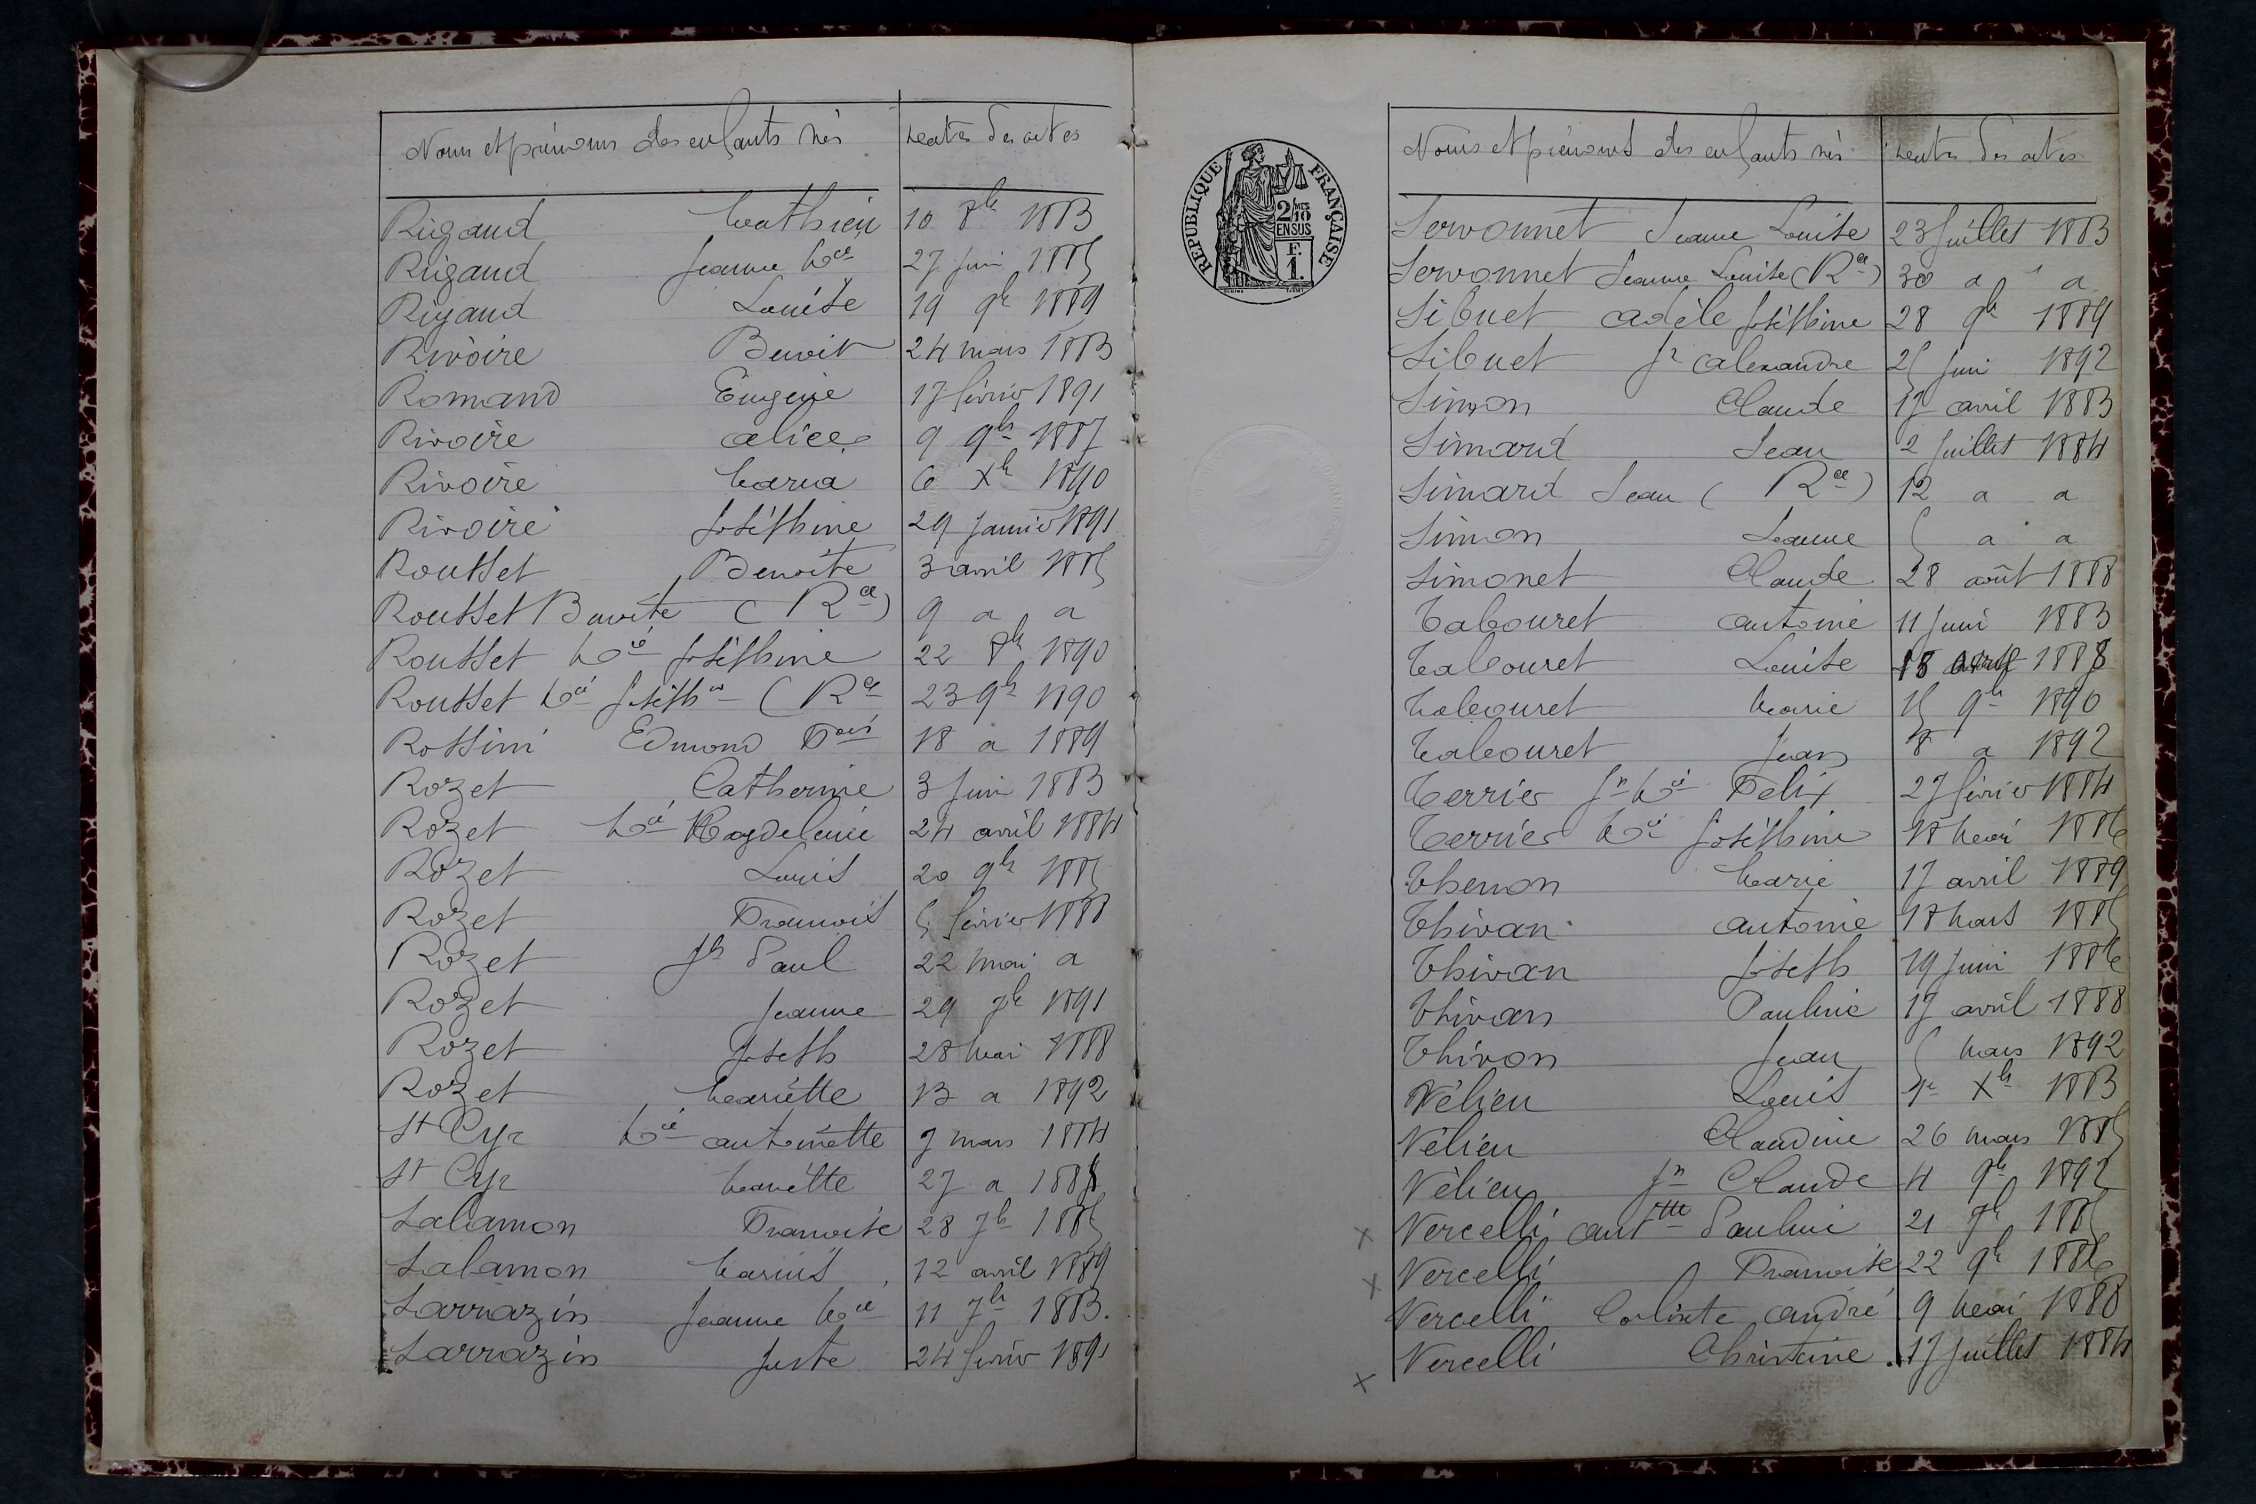 Noms et prénoms des enfants nés Dates des actes
Rigaud Mathieu 10 8bre 1883
Rigaud Jeanne Mie 27 Juin 1885
Rigaud Louise 19 9bre 1889
Rivoire Benoit 24 mars 1883
Romand Eugénie 17 février 1891
Rivoire Alice 9 9bre 1887
Rivoire Maria 6 Xbre 1890
Rivoire Joséphine 29 Janvier 1891
Rousset Benoîte 3 avril 1885
Rousset Benoîte (Rce) 9 a a
Rousset Mie Joséphine 22 8bre 1890
Rousset Mie Joséphine (Rce 23 9bre 1890
Rossini Edmond Fois 18 a 1889
Rozet Catherine 3 Juin 1883
Rozet Mie Magdeleine 24 avril 1884
Rozet Louis 20 9bre 1885
Rozet François 5 février 1888
Rozet Jh Paul 22 mai a
Rozet Jeanne 29 7bre 1891
Rozet Joseph 28 Mai 1888
Rozet Mariette 13 a 1892
St Cyr Mie Antoinette 7 mars 1884
St Cyr Mariette 27 a 1888
Salamon Françoise 28 7bre 1885
Salamon Marius 12 avril 1889
Sarrazin Jeanne Mie 11 7bre 1883.
Sarrazin Juste 24 février 1891
RÉPUBLIQUE FRANÇAISE
2/10 MES
EN SUS
F.
1.
Noms et prénoms des enfants nés Dates des actes
Servonnet Jeanne Louise 23 Juillet 1883
Servonnet Jeanne Louise (Rce) 30 a a
Sibuet Adèle Joséphine 28 9bre 1889
Sibuet Jn Alexandre 25 Juin 1892
Simon Claude 17 avril 1883
Simard Jean 2 Juillet 1884
Simard Jean (Rce) 12 a a
Simon Jeanne 5 a a
Simonet Claude 28 août 1888
Tabouret Antoine 11 Juin 1883
Tabouret Louise 18 avril 1888
Tabouret Marie 15 9bre 1890
Tabouret Jean 8 a 1892
Terrier Jn Mie Félix 27 février 1884
Terrier Mie Joséphine 18 Mai 1886
Thenon Marie 17 avril 1889
Thivan Antoine 18 Mars 1885
Thivan Joseph 19 Juin 1886
Thivan Pauline 17 avril 1888
Thivon Jean 5 Mars 1892
Vélien Louis 1er Xbre 1883
Vélien Claudine 26 Mars 1885
Vélien Jn Claude 4 9bre 1892
x Vercelli Anttte Pauline 21 7bre 1885
x Vercelli Françoise 22 9bre 1886
Vercelli Calixte André 9 Mai 1888
x Vercelli Christine 17 Juillet 1884